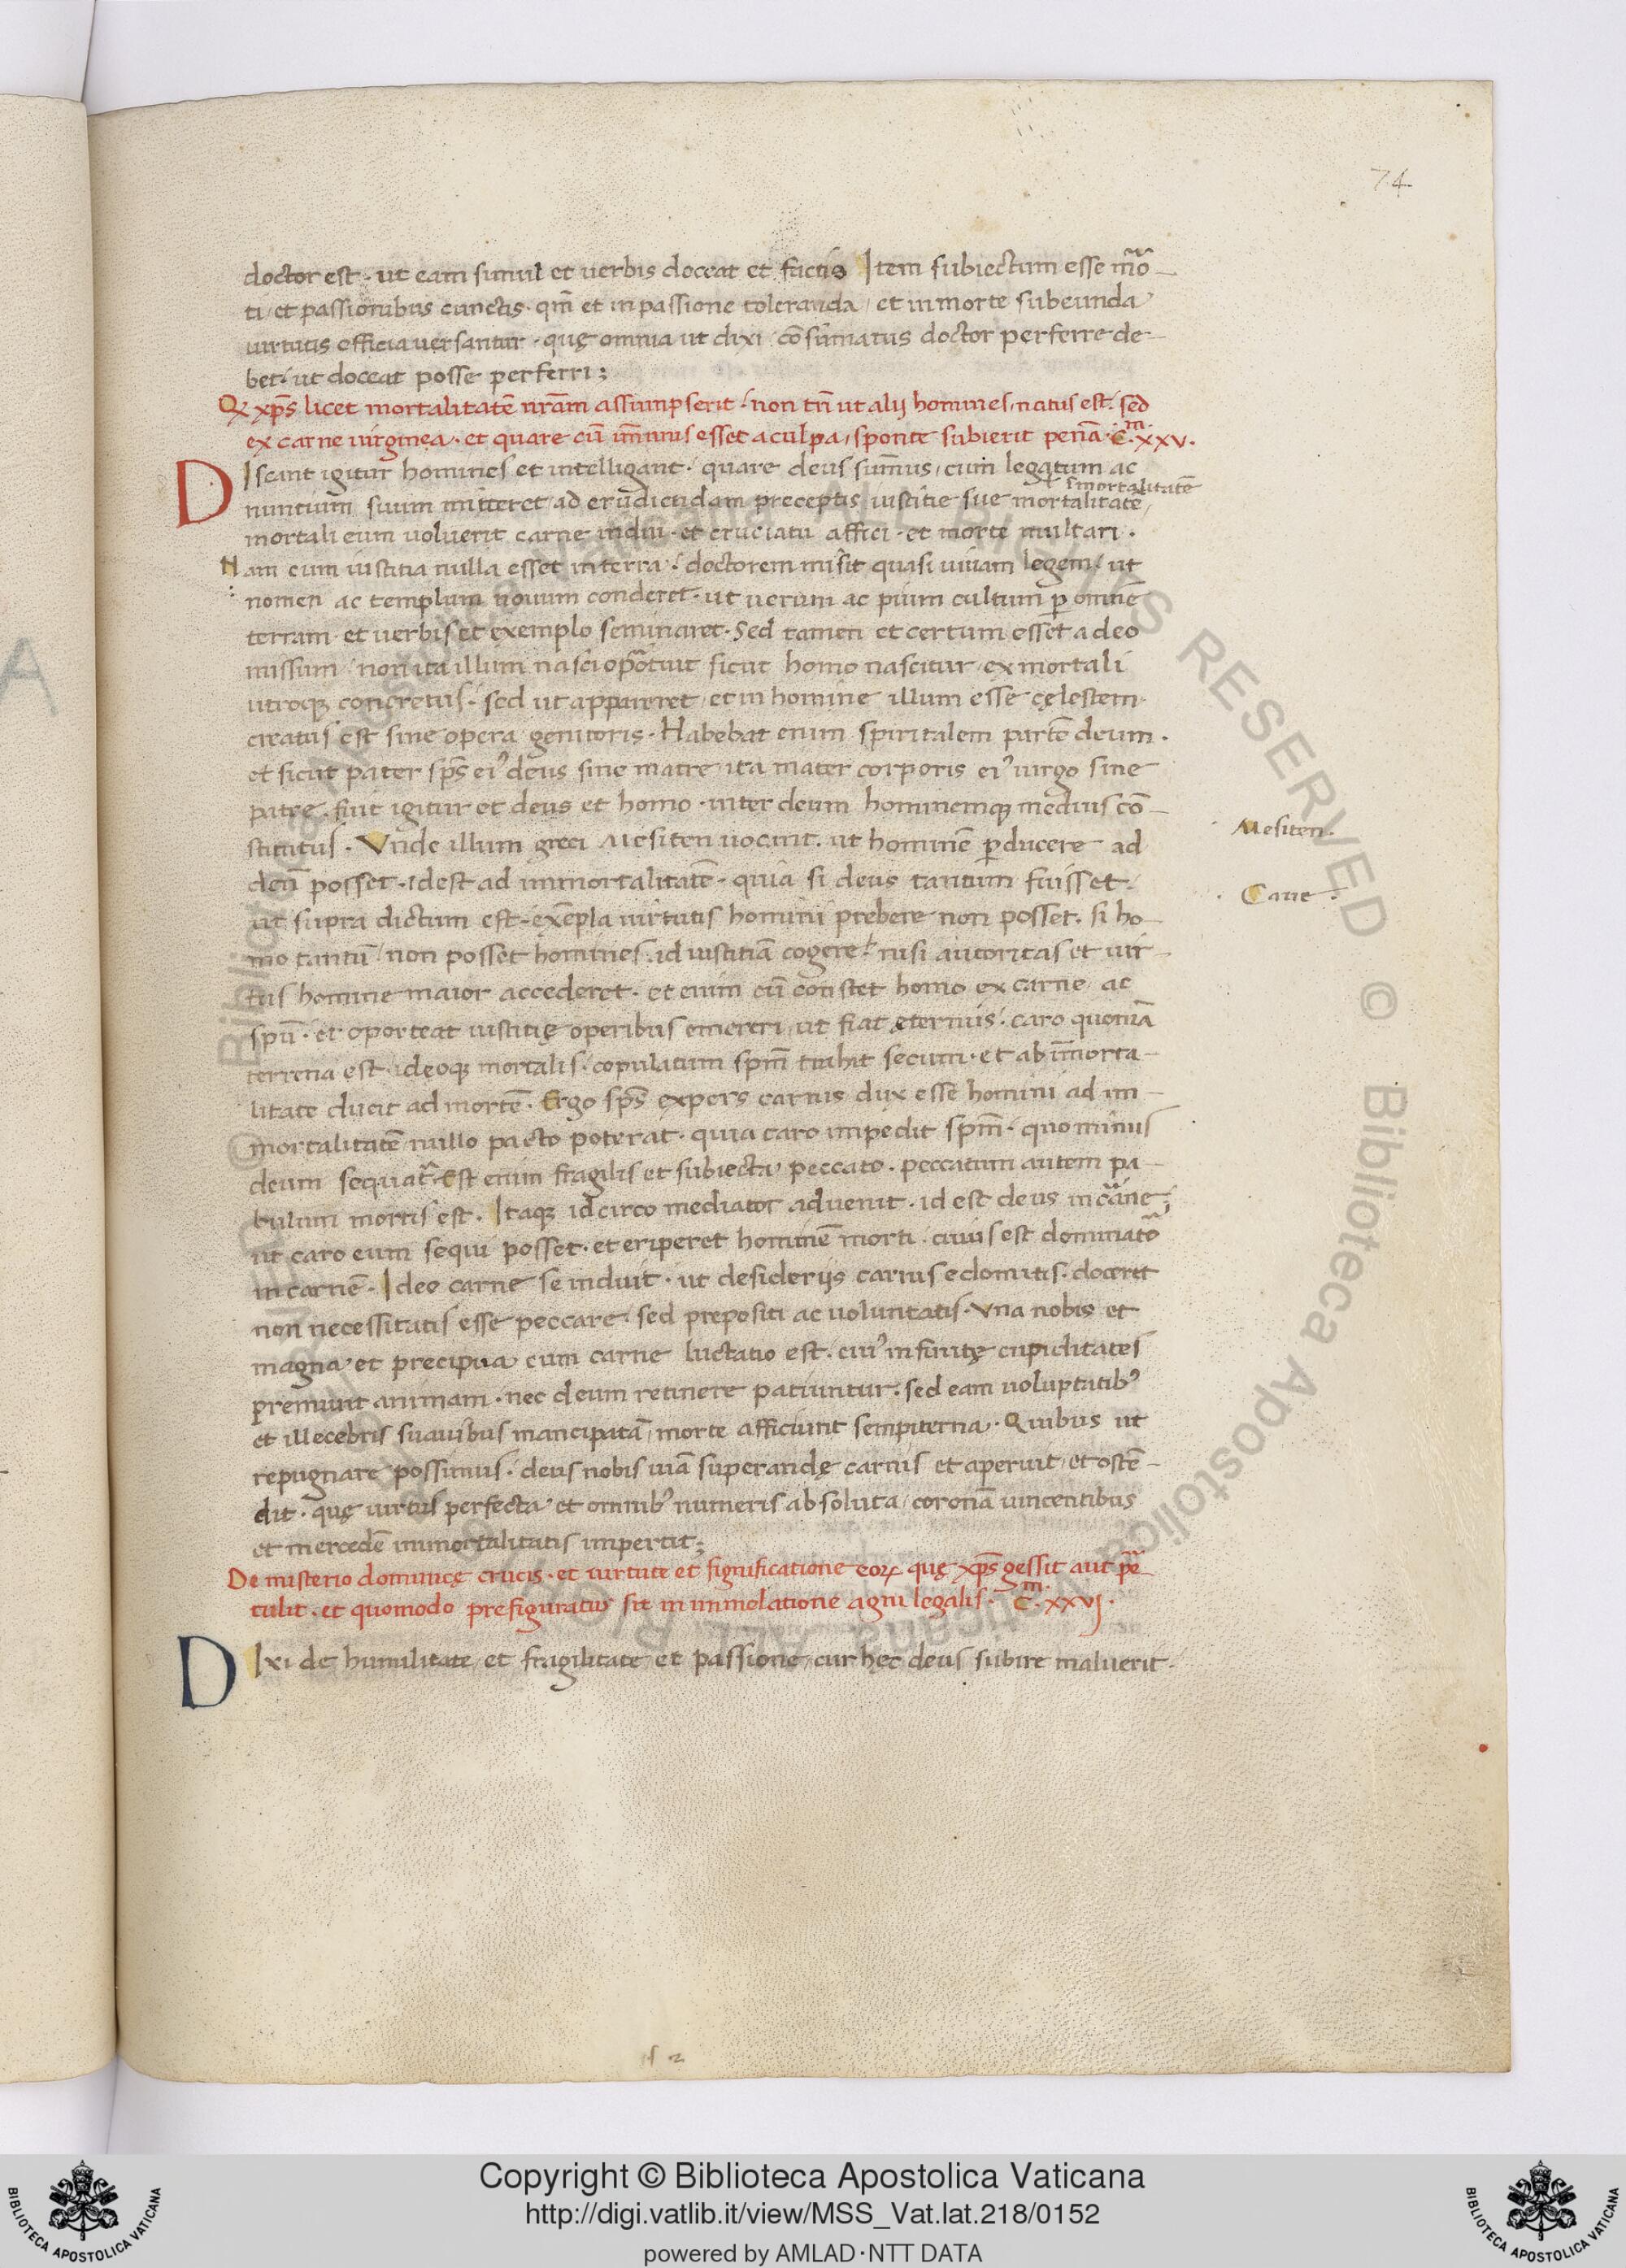 74
doctor est · ut eam simul et uerbis doceat et factis Item subiectum esse mor̃-
ti / et passionibus cunctis · qm̃ et in passione toleranda / et in morte subeunda
uirtutis officia uersantur · quę omnia ut dixi / cõsumatus doctor perferre de-
bet · ut doceat posse perferri ;
Q xp̃s licet mortalitatẽ nr̃am assumpserit · non tñ ut alij homines / natus est · sed
ex carne uirginea · et quare cũ im̃unis esset a culpa / sponte subierit penã · C.m xxv.
DIscant igitur homines et intelligant · quare deus sum̃us / cum legatum ac
īmortalitatẽ
nuntium suum mitteret / ad erudiendam preceptis iustitie sue mortalitatẽ /
mortali eum uoluerit carne indui · et cruciatu affici · et morte multari .
Nam cum iustitia nulla esset in terra · doctorem misit quasi uiuam legem / ut
nomen ac templum nouum conderet · ut uerum ac pium cultum p omne
terram · et uerbis et exemplo seminaret · Sed tamen et certum esset a deo
missum / non ita illum nasci oportuit sicut homo nascitur / ex mortali
utroq; concretus · sed ut appareret / et in homine illum esse cęlestem ·
creatus est sine opera genitoris · Habebat enim spiritalem partẽ deum .
et sicut pater sp̃s ei' deus sine matre / ita mater corporis ei' uirgo sine
patre · fuit igitur et deus et homo · inter deum hominemq; medius cõ-
stitutus · Vnde illum greci Mesiten uocant · ut hominẽ pducere ad
Mesiten.
deũ posset · idest ad immortalitatẽ · quia si deus tantum fuisset ·
Caue .
ut supra dictum est · exẽpla uirtutis homini prebere non posset · si ho-
mo tantũ / non posset homines ad iustitiã cogere / nisi autoritas et uir-
tus homine maior accederet · et enim cũ constet homo ex carne ac
spũ · et oporteat iustitię operibus emereri / ut fiat ęternus · caro quoniã
terrena est · ideoq; mortalis · copulatum spm̃ trahit secum · et ab im̃orta-
litate ducit ad mortẽ · Ergo sp̃s expers carnis dux esse homini ad im-
mortalitatẽ nullo pacto poterat · quia caro impedit spm̃ · quo minus
deum sequat̃ · Est enim fragilis et subiecta peccato · peccatum autem pa-
bulum mortis est · Itaq; idcirco mediator aduenit · id est deus in carne ·
ut caro eum sequi posset · et eriperet hominẽ morti · cuius est dominatõ
in carnẽ · Ideo carne se induit · ut desiderijs carnis edomitis · doceret
non necessitatis esse peccare / sed prepositi ac uoluntatis · Vna nobis et
magna et precipua cum carne luctatio est · cui' infinitę cupiditates
premunt animam · nec deum retinere patiuntur · sed eam uoluptatib'
et illecebris suauibus mancipatã / morte afficiunt sempiterna · Quibus ut
repugnare possimus · deus nobis uiã superandę carnis et aperuit / et ostẽ-
dit · quę uirtus perfecta et omnib' numeris absoluta / coronã uincentibus
et mercedẽ immortalitatis impertit ;
De misterio dominicę crucis · et uirtute et significatione eoꝝ quę xp̃s gessit aut per-
tulit · et quomodo prefiguratus sit in immolatione agni legalis · C.m xxvj.
DIxi de humilitate / et fragilitate et passione / cur hęc deus subire maluerit ·
Copyright © Biblioteca Apostolica Vaticana
http://digi.vatlib.it/view/MSS_Vat.lat.218/0152
powered by AMLAD·NTT DATA